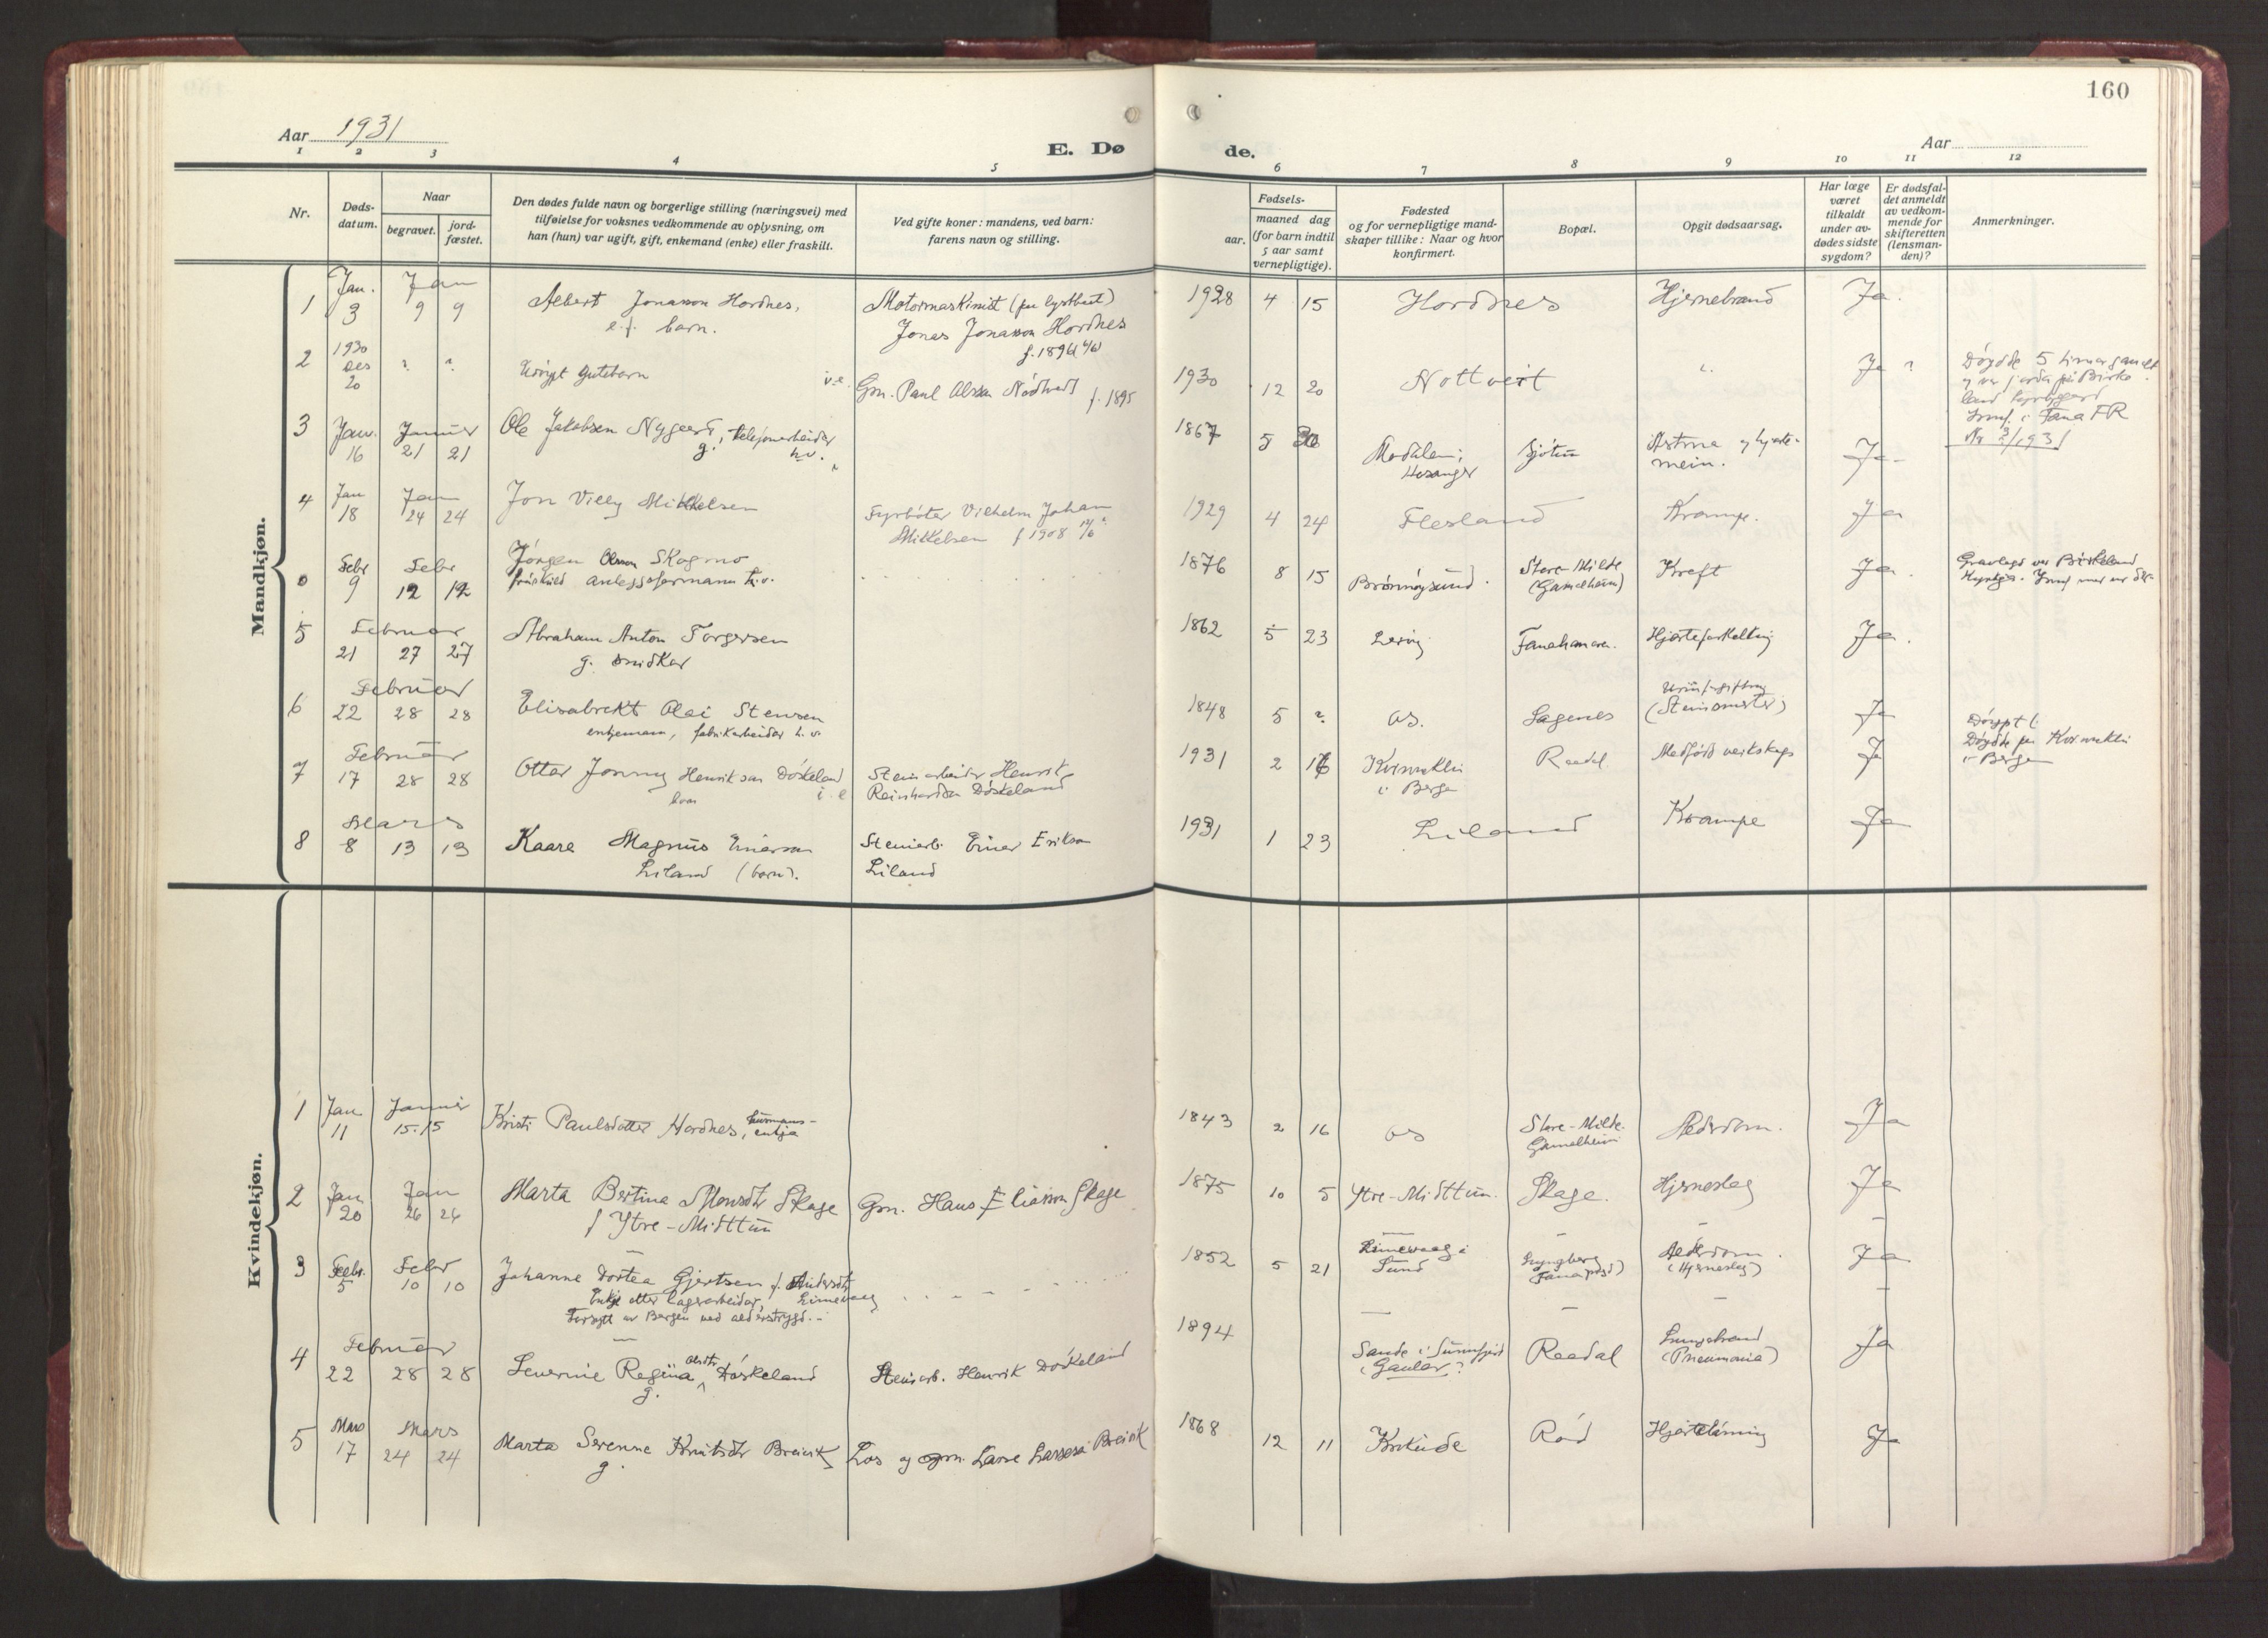 160
Aar 1931
E. Dø
de.
Aar
1 2 3 4 5 6 7 8 9 10 11 12
Nr.
Døds-
datum.
Naar
begravet.
jord-
fæstet.
Den dødes fulde navn og borgerlige stilling (næringsvei) med
tilføielse for voksnes vedkommende av oplysning, om
han (hun) var ugift, gift, enkemand (enke) eller fraskilt.
Ved gifte koner: mandens, ved barn:
farens navn og stilling.
Fødsels-
aar.
maaned dag
(for barn indtil
5 aar samt
vernepligtige).
Fødested
og for vernepligtige mand-
skaper tillike: Naar og hvor
konfirmert.
Bopæl.
Opgit dødsaarsag.
Har læge
været
tilkaldt
under av-
dødes sidste
sygdom?
Er dødsfal-
det anmeldt
av vedkom-
mende for
skifteretten
(lensman-
den)?
Anmerkninger.
Mandkjøn.
1 Jan. 3 Jan 9 9
Albert Jonasson Hordnes,
barn.
Motormaskinist
Jonas Jonasson Hordnes
f. 1896
1928 4 15 Hordnes Hjernebrand Ja.
2 1930 Des 20 ? ?
Udøypt gutebarn
Gm. Paul Nødtvedt f. 1895
1930 12 20 Nottveit Ja ?
Døydde 5 timar gamall
Fana FR
3 Jan. 16 Januar 21 21
Ole Jakobsen Nygaard, telefonarbeidar
g.
1867 5 Modalen, Hosanger
Astma og hjarte-
mein. Ja
Nr 2/1931
4 Jan 18 Jan 24 24
Jon Villy Mikkelsen
Fyrbøter Vilhelm Johan
Mikkelsen f 1908
1929 4 24 Flesland Krampe. Ja
0 Febr 9 Febr 12 12
Jørgen Olsson Skogmo
fråskild anleggsformann
1876 8 15 Brønnøysund.
Store-Milde
(Gamelheim)
Kreft Ja.
Gravlagd ved Birkeland
5 Februar 21 27 27
Abraham Anton Torgersen
g. snidkar
1862 5 23 Fanahamaren. Hjarteforkalking Ja.
6 Februar 22 28 28
Elisabrekt Olai Stensen
enkjemann, fabrikarbeidar
1848 5 ? Os. Lagenes
Urinforgiftning
Ja
7 Februar 17 28 28
Ottar Jonny Henriksson Døskeland
barn
Steinarbeidar Henrik
Reinhardson Døskeland
1931 2 16
Kvinneklin
i Bergen
Raadal Medfødt veikskap Ja
Døypt
Døydde på Kvinneklin
i Bergen
8 Mars 8 13 13
Kaare Magnus Einarson
Liland (barn).
Steinarb. Einar Erikson
Liland
1931 1 23 Liland Krampe Ja
Kvindekjøn.
1 Jan 11 Januar 15. 15
Kristi Paulsdotter Hordnes, husmans-
enkja
1843 2 16 Os
Store-Milde.
Gamelheim
Alderdom. Ja
2 Jan 20 Jan 26 26
Marta Bertina Monsdtr Skage
f Ytre-Midttun
Gm. Hans Eliasson Skage
1875 10 5 Ytre-Midttun. Skage. Hjerneslag Ja
3 Febr. 5 Febr 10 10
Johanne Dortea Gjertsen f. Andersdtr
Enkje etter lagerarbeidar, Limevaag
Forsytt av Bergen med alderstrygd.
1852 5 21
Limevaag i
Sund
Lyngberg
Fana
Alderdom.
(Hjerneslag)
Ja
4 Februar 22 28 28
Severine Regina Olsdtr Døskeland
g.
Steinarb. Henrik Døskeland
1894
Sande i Sunnfjord
(Gaular?
Raadal
Lungebrand
(Pneumonia)
Ja
5 Mars 17 Mars 24 24
Marta Serenne Knutsdtr Breivik
g.
Los og gm. Larse Larsson Breivik
1868 12 11 Krokeide Rød Hjartelaming Ja